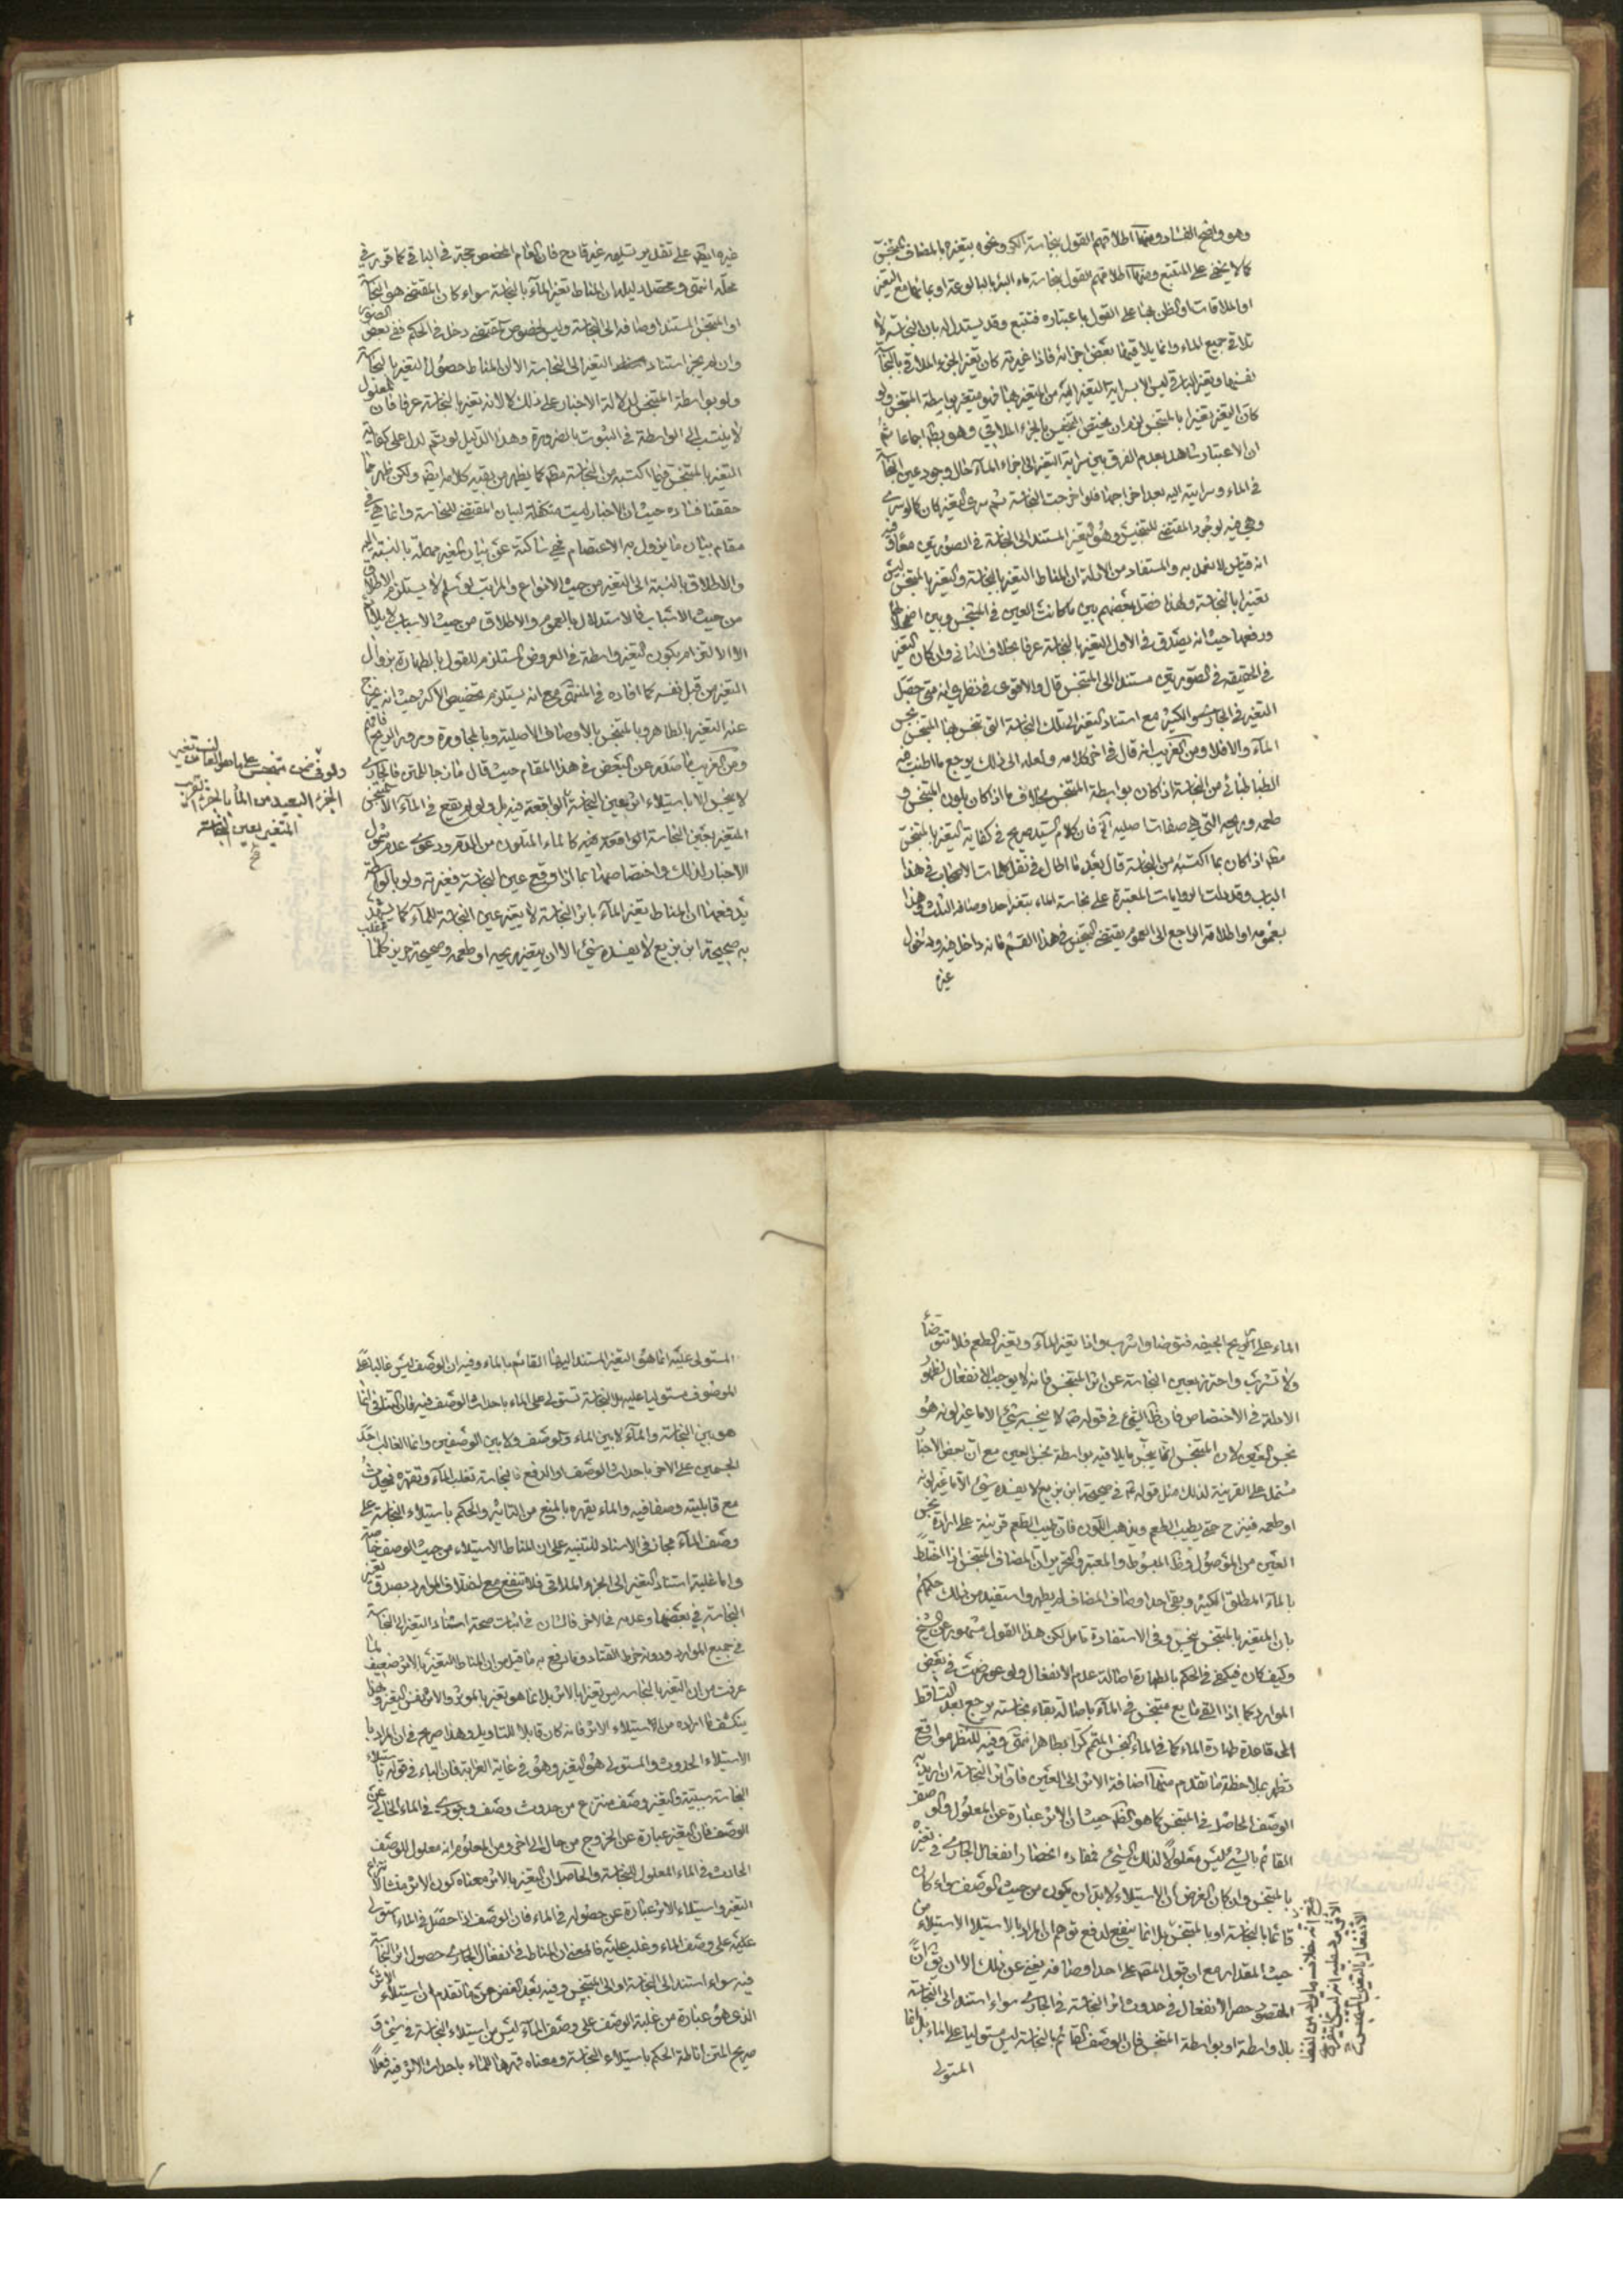 وهو واضح الفساد ومنها اطلاقهم القول بنجاسة الكر ونحوه بتغيره بالمضاف المتنجس
كما لا يخفى على المتتبع ومنها اطلاقهم القول بنجاسة ماء البئر بالبالوعة او بمائها مع التغير
او الملاقات والظن بنائه على القول باعتباره فتتبع وقد يستدل له بان النجاسة لا
تلاقي جميع الماء وانما يلاقيها بعض اجزائه فاذا غيرته كان تغير الجزء الملاقي بالنجاسة
نفسها وتغير الباقي ليس الا بسراية التغير اليه من المتغير بها فهو متغير بواسطة المتنجس ولو
كان التغير تغيرا بالمتنجس لزم ان يختص التنجيس بالجزء الملاقي وهو بط اجماعا ثم
ان الاعتبار شاهد بعدم الفرق بين سراية التغير الى اجزاء الماء حال وجود عين النجاسة
في الماء وسرايته اليه بعد اخراجها فلو اخرجت النجاسة ثم سرى التغير كان كما لو سرى
وهي فيه لوجود المقتضي للتنجيس وهو التغير المستند الى النجاسة في الصورتين معا وفيه
انه قياس لا نعمل به والمستفاد من الادلة ان المناط التغير بالنجاسة والتغير بالمتنجس ليس
تغيرا بالنجاسة ولهذا فصل بعضهم بين ما كانت العين في المتنجس وبين اضمحلالها
ورفعها حيث انه يصدق في الاول التغير بالنجاسة عرفا بخلاف الثاني وان كان التغير
في الحقيقة في الصورتين مستندا الى المتنجس قال والاقوى في نظري انه متى حصل
التغير في الجاري والكثير مع استناد التغير الى تلك النجاسة التي تنجس بها المتنجس نجس
الماء والا فلا ومن الغريب انه قال في اخر كلامه ولعله الى ذلك يرجع ما اطنب فيه
الطباطبائي من النجاسة اذا كان بواسطة المتنجس بخلاف ما اذا كان بلون المتنجس و
طعمه وريحه التي هي صفات اصلية الخ فان كلام السيد صريح في كفاية التغير بالمتنجس
مط اذا كان بما اكتسبه من النجاسة قال بعد ما اطال في نقل كلمات الاصحاب في هذا
الباب وقد دلت الروايات المعتبرة على نجاسة الماء بتغير احد اوصافه الثلث وهذا
بعمومه او اطلاقه الراجع الى العموم يقتضي التنجيس في هذا القسم فانه داخل فيه ودخول
غيره
غيره ايضا على تقدير تسليمه غير قادح فان العام المخصص حجة في الباقي كما قرر في
محله انتهى ومحصل دليله ان المناط تغير الماء بالنجاسة سواء كان المقتضي هو النجاسة
او المتنجس المستند اوصافه الى النجاسة وليس لخصوص المقتضي دخل في الحكم ففي بعض الصور
وان لم يجز استناد التغير الى النجاسة الا ان المناط حصول التغير بالنجاسة
ولو بواسطة المتنجس لدلالة الاخبار على ذلك لا لانه تغير بالنجاسة عرفا فان المعلول
لا ينسب الى الواسطة في الثبوت بالضرورة وهذا الدليل لو تم لدل على كفاية
التغير بالمتنجس فيما اكتسبه من النجاسة مط كما يظهر من بقية كلامه ايضا ولكن ظهر مما
حققنا فساده حيث ان الاخبار ليست متكفلة لبيان المقتضي للنجاسة وانما هي في
مقام بيان ما يزول به الاعتصام فهي ساكتة عن بيان المغير مهملة بالنسبة اليه
والاطلاق بالنسبة الى التغير من حيث الانواع والمراتب لو سلم لا يستلزم الاطلاق
من حيث الاسباب فالاستدلال بالعموم والاطلاق من حيث الاسباب لا يلائم
الا الالتزام بكون التغير واسطة في العروض المستلزم للقول بالطهارة بزوال
التغير من قبل نفسه كما افاده في المنتهى مع انه يستلزم تخصيص الاكثر حيث انه يخرج
عنه التغير بالطاهر وبالمتنجس بالاوصاف الاصلية وبالمجاورة ومرور الريح فافهم
ومن الغريب ما صدر عن البعض في هذا المقام حيث قال مازجا للمتن فالجاري
لا ينجس الا باستيلاء اثر عين النجاسة الواقعة فيه بل ولو لم يقع في الماء الا المتنجس
المتغير بعين النجاسة الواقعة فيه كالماء المتلون من الدم ودعوى عدم شمول
الاخبار لذلك واختصاصها بما اذا وقع عين النجاسة فغيرته ولو بالواسطة
يدفعها ان المناط تغير الماء باثر النجاسة لا بتغير عين النجاسة للماء كما يشهد
به صحيحة ابن بزيع لا يفسده شيء الا ان يتغير ريحه او طعمه وصحيحة حريز كلما غلب
الجزء البعيد من الماء بالجزء القريب
المتغير بعين النجاسة
الماء على ريح الجيفة فتوضأ واشرب واذا تغير الماء وتغير الطعم فلا تتوضأ
ولا تشرب واحترز بعين النجاسة عن اثر المتنجس فانه لا يوجب الانفعال لظهور
الادلة في الاختصاص فان ظ الشيء في قوله ص لا ينجسه شيء الا ما غير لونه هو
نجس العين لان المتنجس انما ينجس ما يلاقيه بواسطة نجس العين مع ان بعض الاخبار
مشتمل على القرينة لذلك مثل قوله ع في صحيحة ابن بزيع لا يفسده شيء الا ما غير لونه
او طعمه فينزح حتى يطيب الطعم ويذهب اللون فان طيب الطعم قرينة على ارادة نجس
العين من الموصول وظ المبسوط والمعتبر والتحرير ان المضاف المتنجس اذا اختلط
بالماء المطلق الكثير وبقي احد اوصاف المضاف لم يطهر واستفيد من ذلك حكمهم
بان المتغير بالمتنجس ينجس وفي الاستفادة تامل لكن هذا القول مشهور عن الشيخ
وكيف كان فيكفي في الحكم بالطهارة اصالة عدم الانفعال ولو عورضت في بعض
الموارد كما اذا القي مايع متنجس في الماء باصالة بقاء نجاسته يرجع بعد التساقط
الى قاعدة طهارة الماء كما في الماء النجس المتمم كرا بطاهر انتهى وفيه للنظر مواقع
تظهر بملاحظة ما تقدم منها اضافة الاثر الى العين فان اثر النجاسة ان اريد به
الوصف الحاصل في المتنجس كما هو الظ حيث ان الاثر عبارة عن المعلول والوصف
القائم بالشيء ليس معلولا لذلك الشيء فمفاده انحصار انفعال الجاري في تغيره
بالمتنجس وان كان الغرض ان الاستيلاء لا بد ان يكون من حيث الوصف سواء كان
قائما بالنجاسة او بالمتنجس بل انما ينفع لدفع توهم ان المراد بالاستيلاء الاستيلاء من
حيث المقدار مع ان قول المصنف على احد اوصافه يغني عن ذلك الا ان يق ان
المقصود حصر الانفعال في حدوث اثر النجاسة في الجاري سواء استند الى النجاسة
بلا واسطة او بواسطة المتنجس فان الوصف القائم بالنجاسة ليس مستوليا على الماء بل انما
المستولي
المستولي عليه انما هو التغير المستند اليها القائم بالماء وفيه ان الوصف ليس غالبا على
الموصوف مستوليا عليه بل النجاسة تستولي على الماء باحداث الوصف فيه فان التنافي انما
هو بين النجاسة والماء لا بين الماء والوصف ولا بين الوصفين وانما الغالب احد
الجسمين على الاخر باحداث الوصف او الدفع فالنجاسة تغلب الماء وتقهره فيحدث
مع قابليته وصفا فيه والماء يقهره بالمنع من التاثير والحكم باستيلاء النجاسة على
وصف الماء مجاز في الاسناد للتنبيه على ان المناط الاستيلاء من حيث الوصف خاصة
واما غلبة استناد التغير الى الجزء الملاقي فلا تنفع مع اختلاف الموارد بصدق تغير
النجاسة في بعضها وعدمه في الاخر فالشان في اثبات صحة استناد التغير الى النجاسة
في جميع الموارد ودونه خرط القتاد وما رفع به ما قيل من ان المناط التغير بالاثر ضعيف لما
عرفت من ان التغير بالنجاسة ليس تغيرا بالاثر بل انما هو تغير بالمؤثر والاثر نفس التغير وبهذا
ينكشف ما اراده من الاستيلاء الاثر فانه كان قابلا للتاويل وهذا صريح في ان المراد با
الاستيلاء الحدوث والمستولي هو التغير وهو في غاية الغرابة فان الباء في قوله باستيلاء
النجاسة سببية والتغير وصف منتزع من حدوث وصف وجودي في الماء الخالي عن
الوصف فان التغير عبارة عن الخروج من حال الى اخر ومن المعلوم انه معلول للوصف
الحادث في الماء المعلول للنجاسة والحاصل ان التغير بالاثر معناه كون الاثر منشأ لانتزاع
التغير واستيلاء الاثر عبارة عن حصوله في الماء فان الوصف اذا حصل في الماء استولى
عليه على وصف الماء وغلب عليه فالمعنى ان المناط في انفعال الجاري حصول اثر النجاسة
فيه سواء استند الى النجاسة او الى المتنجس وفيه بعد الغض عن ما تقدم ان استيلاء الاثر
الذي هو عبارة من غلبة الوصف على وصف الماء ليس من استيلاء النجاسة في شيء و
صريح المتن اناطة الحكم باستيلاء النجاسة ومعناه قهرها للماء باحداث الاثر فيه فعلا